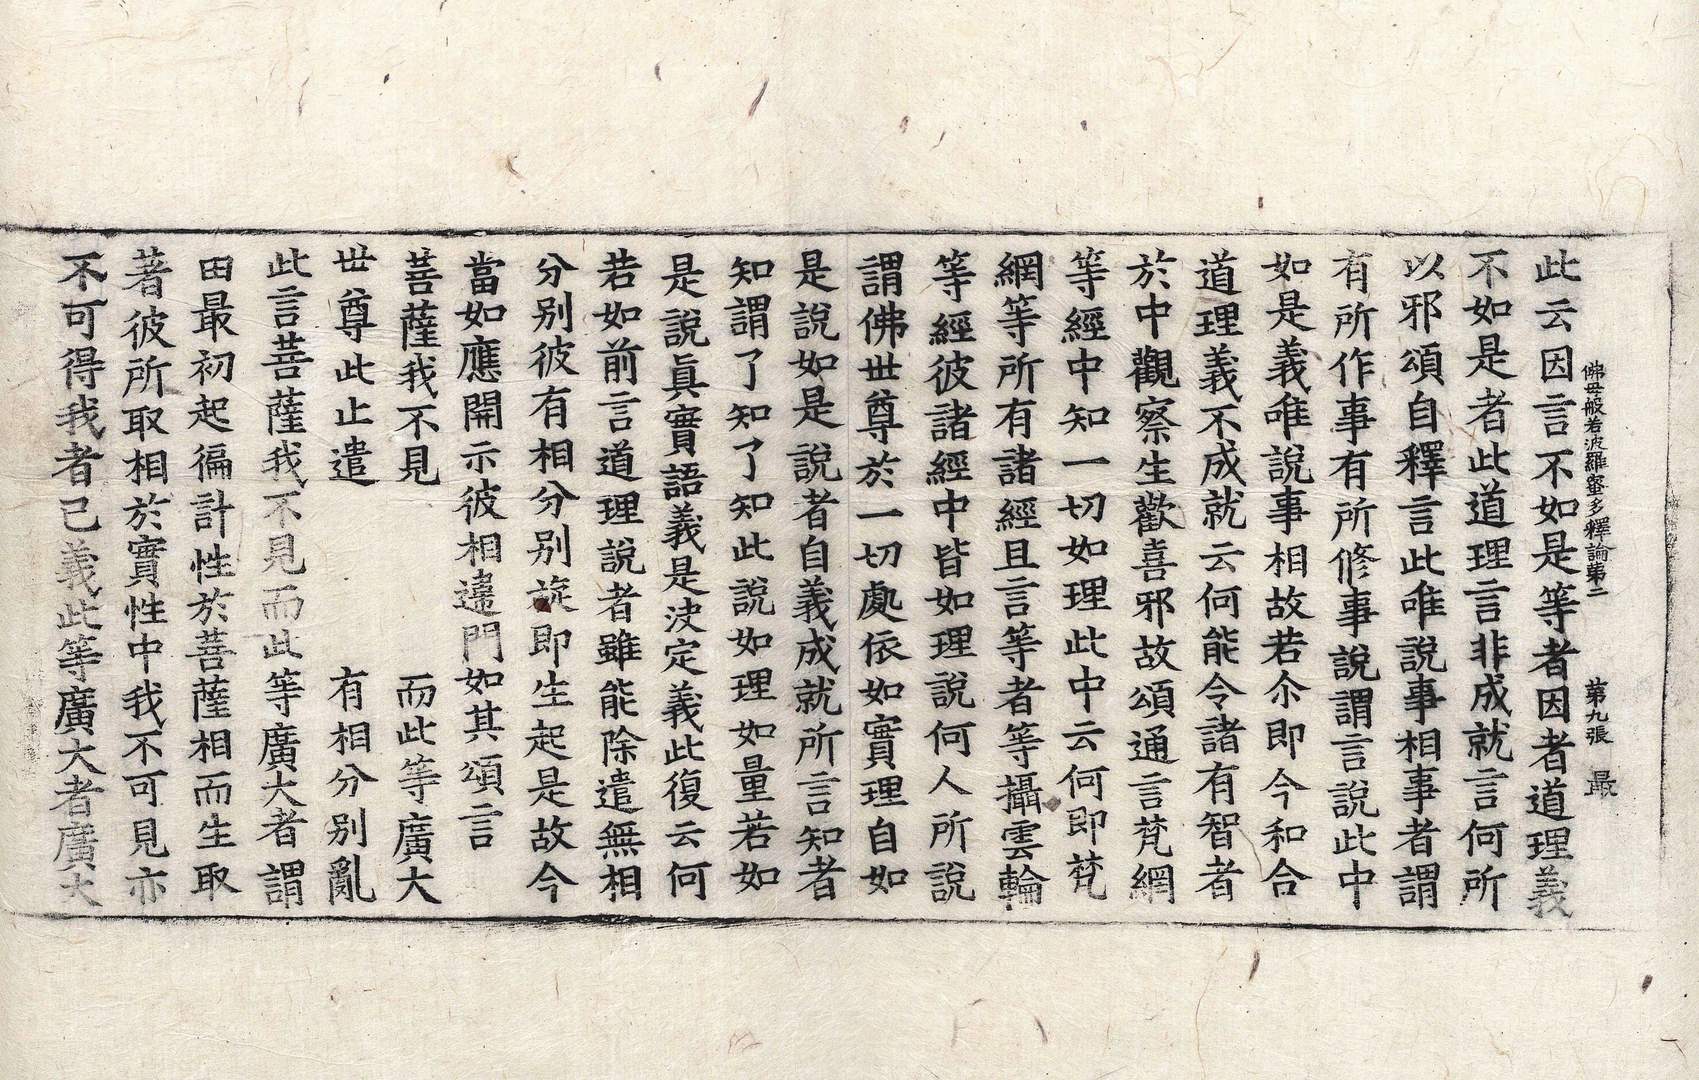 佛母般若波羅蜜多釋論第二　第九張　最
此云因言不如是等者因者道理義
不如是者此道理言非成就言何所
以邪頌自釋言此唯說事相事者謂
有所作事有所修事說謂言說此中
如是義唯說事相故若尒即今和合
道理義不成就云何能令諸有智者
於中觀察生歡喜邪故頌通言梵網
等經中知一切如理此中云何即梵
網等所有諸經且言等者等攝雲輪
等經彼諸經中皆如理說何人所說
謂佛世尊於一切處依如實理自如
是說如是說者自義成就所言知者
知謂了知了知此說如理如量若如
是說眞實語義是决定義此復云何
若如前言道理說者雖能除遣無相
分別彼有相分別旋即生起是故今
當如應開示彼相違門如其頌言
菩薩我不見　而此等廣大
世尊此止遣　有相分別亂
此言菩薩我不見而此等廣大者謂
由最初起徧計性於菩薩相而生取
著彼所取相於實性中我不可見亦
不可得我者己義此等廣大者廣大